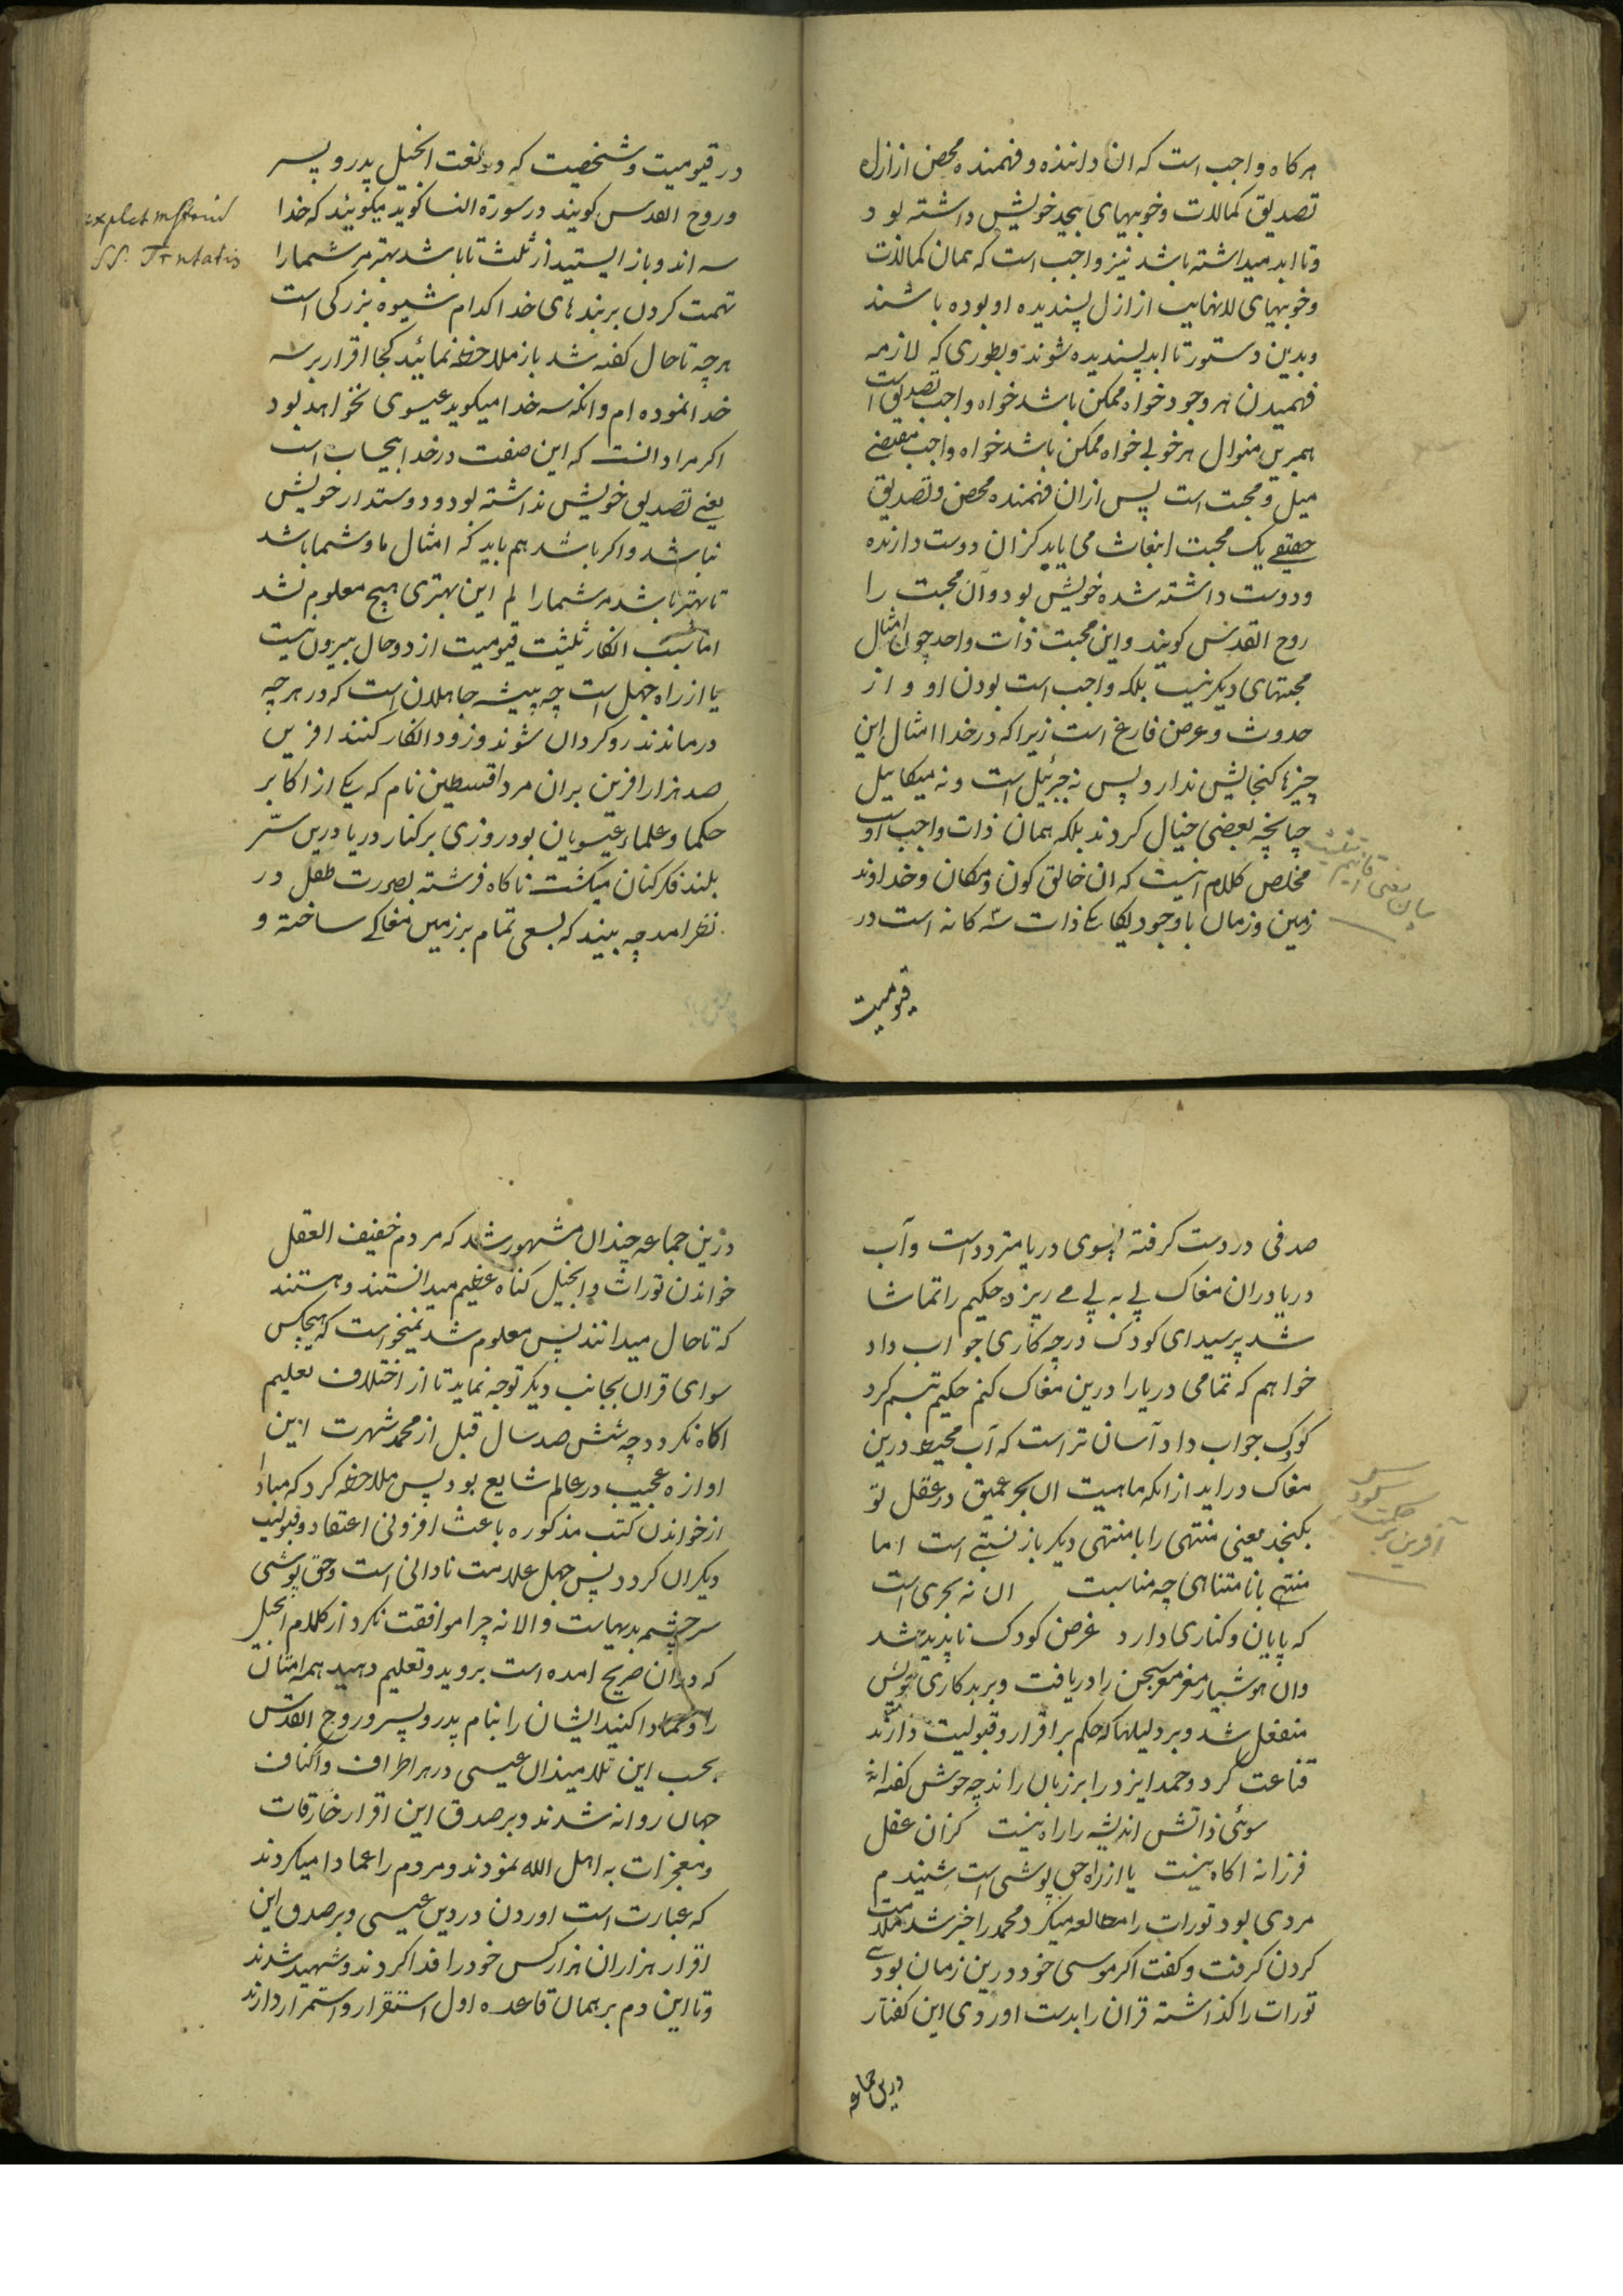 هرکاه واجب است که ان داننده و فهمنده محض از ازل
تصدیق کمالات و خوبیهای بیحد خویش داشته بود
و تا ابد میداشته باشد نیز واجب است که همان کمالات
و خوبیهای لانهایب از ازل پسندیده او بوده باشند
و بدین دستور تا ابد پسندیده شوند و بطوری که لازمه
فهمیدن هر وجود خواه ممکن باشد خواه واجب تصدیق است
همبرین منوال هر خوبی خواه ممکن باشد خواه واجب مقتضی
میل و محبت است پس ازان فهمنده محض و تصدیق
حقیقی یک محبت انبعاث می یابد کزان دوست دارنده
و دوست داشته شده خویش بود و آن محبت را
روح القدس کویند و این محبت ذات واحد چون امثال
محبتهای دیکر نیست بلکه واجب است بودن او و از
حدوث و عرض فارغ است زیرا که در خدا امثال این
چیزها کنجایش ندارد پس نه جبرئیل است و نه میکاییل
چنانچه بعضی خیال کردند بلکه همان ذات واجب اوست
مخلص کلام اینست که ان خالق کون و مکان و خداوند
زمین و زمان با وجود یکایکی ذات سه کانه است در
قیومیت
بیان معنی اقانیم تثلیث
در قیومیت و شخصیت که در لغت انجیل پدر و پسر
و روح القدس کویند در سورة النسا کوید میکوئید که خدا
سه اند و باز ایستید از ثلث تا باشد بهتر مر شما را
تهمت کردن بر بندهای خدا کدام شیوه بزرکی است
هر چه تا حال کفته شد باز ملاحظه نمائید کجا اقرار بر سه
خدا نموده ام و انکه سه خدا میکوید عیسوی نخواهد بود
اکر مراد انست که این صفت در خدا بیجاب است
یعنی تصدیق خویش نداشته بود و دوستدار خویش
نباشد و اکر باشد هم باید که امثال ما و شما باشد
تا بهتر باشد مر شما را لم این بهتری هیچ معلوم نشد
اما سبب انکار ثلیثت قیومیت از دو حال بیرون نیست
یا از راه جهل است چه پیشه جاهلان است که در هر چه
درماندند روکردان شوند و زود انکار کنند افرین
صد هزار افرین بران مرد اقسطین نام که یکی از اکابر
حکما و علماء عیسویان بود روزی بر کنار دریا درین سرّ
بلند فکر کنان میکشت ناکاه فرشته بصورت طفل در
نظر امد چه بیند که بسعی تمام بر زمین مغاکی ساخته و
explct mstriũ
SS. Trntatis
صدفی در دست کرفته بسوی دریا متردد است و آب
دریا دران مغاک پی به پی می ریزد حکیم را تماشا
شد پرسید ای کودک در چه کاری جواب داد
خواهم که تمامی دریا را درین مغاک کنم حکیم تبسم کرد
کودک جواب داد آسان تر است که آب محیط درین
مغاک دراید از انکه ماهیت ان بحر عمیق در عقل تو
بکنجد یعنی منتهی را با منتهی دیکر باز نسبتی است اما
منتهی با نامتناهی چه مناسبت ان نه بحری است
که پایان و کناری دارد غرض کودک ناپدید شد
وان هوشیار مغز مغز سخن را دریافت و بر بدکاری خویش
منفعل شد و بر دلیلها که حکم بر اقرار و قبولیت دارند
قناعت کرد و حمد ایزد را بر زبان راند چه خوش کفته اند
سوئی ذاتش اندیشه را راه نیست کزان عقل
فرزانه اکاه نیست یا از راه حق پوشی است شنیدم
مردی بود تورات را مطالعه میکرد محمد را خبر شد ملامت
کردن کرفت و کفت اکر موسی خود درین زمان بودی
تورات را کذاشته قران را بدست اوردی این کفتار
درین جماعه
آفرین بر حکمت کودک
درین جماعه چندان مشهور شد که مردم خفیف العقل
خواندن تورات و انجیل کناه عظیم میدانستند و هستند
که تا حال میدانند پس معلوم شد نمیخواست که هیچکس
سوای قران بجانب دیکر توجه نماید تا از اختلاف تعلیم
اکاه نکردد چه شش صد سال قبل از محمد شهرت این
اوازه عجیب در عالم شایع بود پس ملاحظه کرد که مبادا
از خواندن کتب مذکوره باعث افزونی اعتقاد و قبولیت
دیکران کردد پس جهل علامت نادانی است و حق پوشی
سر چشمه بدیهاست و الا نه چرا موافقت نکرد از کلام انجیل
که دران صریح امده است بروید و تعلیم دهید همه امتان
را و عمادا کنید ایشان را بنام پدر و پسر و روح القدس
بحسب این تلامیذان عیسی در هر اطراف و اکناف
جهان روانه شدند و بر صدق این اقرار خارقات
و معجزات به اهل الله نمودند و مردم را عمادا میکردند
که عبارت است اوردن در دین عیسی و بر صدق این
اقرار هزاران هزار کس خود را فدا کردند و شهید شدند
و تا این دم بر همان قاعده اول استقرار و استمرار دارند